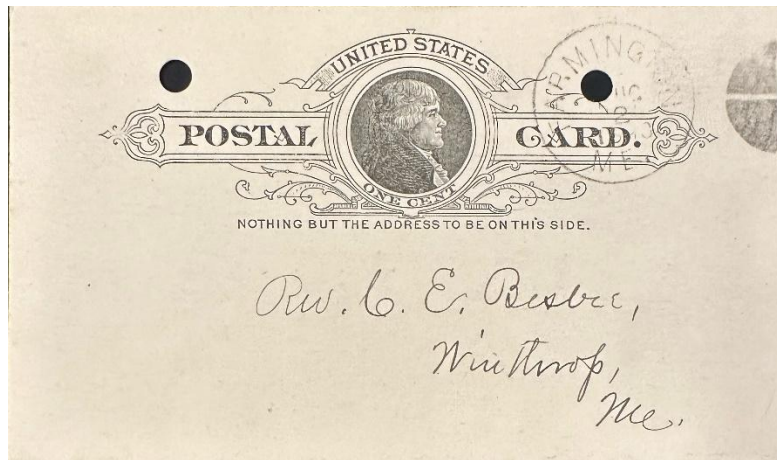 UNITED STATES
POSTAL CARD.
ONE CENT
NOTHING BUT THE ADDRESS TO BE ON THIS SIDE.
ME
Rev. C. E. Besbee,
Winthrop,
Me.